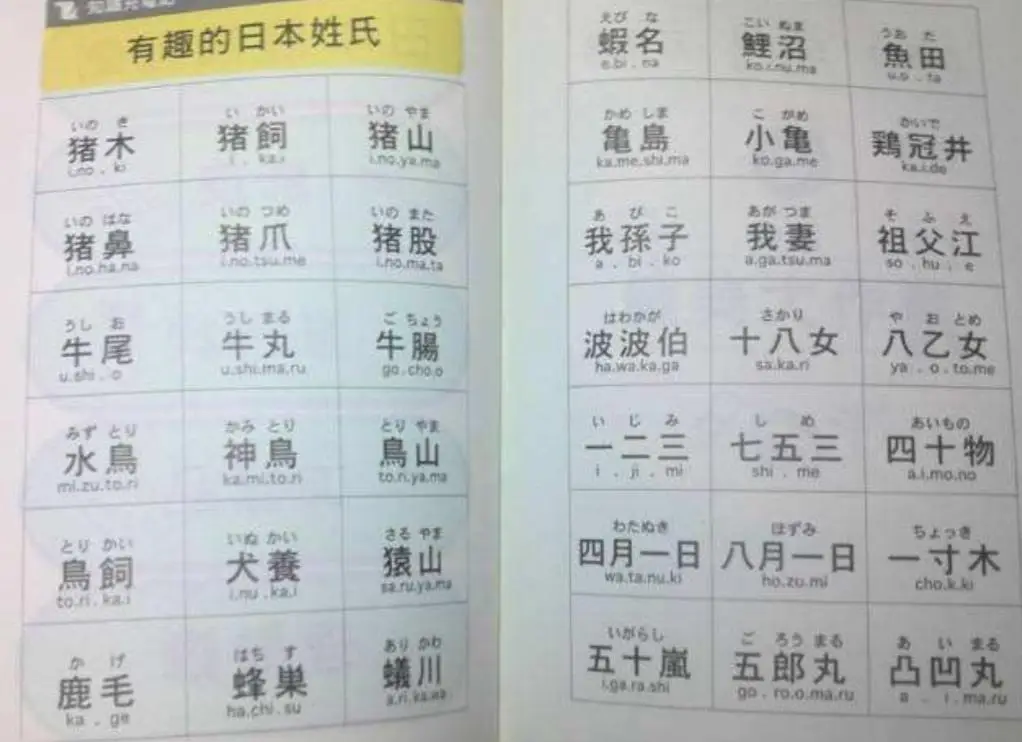 知識充電站
有趣的日本姓氏
いの き
猪木
i.no . ki
い かい
猪飼
i . ka.i
いの やま
猪山
i.no.ya.ma
いの はな
猪鼻
i.no.ha.na
いの つめ
猪爪
i.no.tsu.me
いの また
猪股
i.no.ma.ta
うし お
牛尾
u.shi . o
うし まる
牛丸
u.shi.ma.ru
ご ちょう
牛腸
go.cho.o
みず とり
水鳥
mi.zu.to.ri
かみ とり
神鳥
ka.mi.to.ri
とり やま
鳥山
to.ri.ya.ma
とり かい
鳥飼
to.ri.ka.i
いぬ かい
犬養
i.nu.ka.i
さる やま
猿山
sa.ru.ya.ma
か げ
鹿毛
ka . ge
はち す
蜂巣
ha.chi.su
あり かわ
蟻川
a.ri.ka.wa
えび な
蝦名
e.bi . na
こい ぬま
鯉沼
ko.i.nu.ma
うお た
魚田
u.o . ta
かめ しま
亀島
ka.me.shi.ma
こ がめ
小亀
ko.ga.me
かいで
鶏冠井
ka.i.de
あ び こ
我孫子
a . bi . ko
あが つま
我妻
a.ga.tsu.ma
そ ふ え
祖父江
so . hu . e
はわかが
波波伯
ha.wa.ka.ga
さかり
十八女
sa.ka.ri
や お とめ
八乙女
ya . o . to.me
い じ み
一二三
i . ji . mi
し め
七五三
shi . me
あいもの
四十物
a.i.mo.no
わたぬき
四月一日
wa.ta.nu.ki
ほずみ
八月一日
ho.zu.mi
ちょっき
一寸木
cho.k.ki
いがらし
五十嵐
i.ga.ra.shi
ご ろう まる
五郎丸
go . ro.o.ma.ru
あ い まる
凸凹丸
a . i . ma.ru